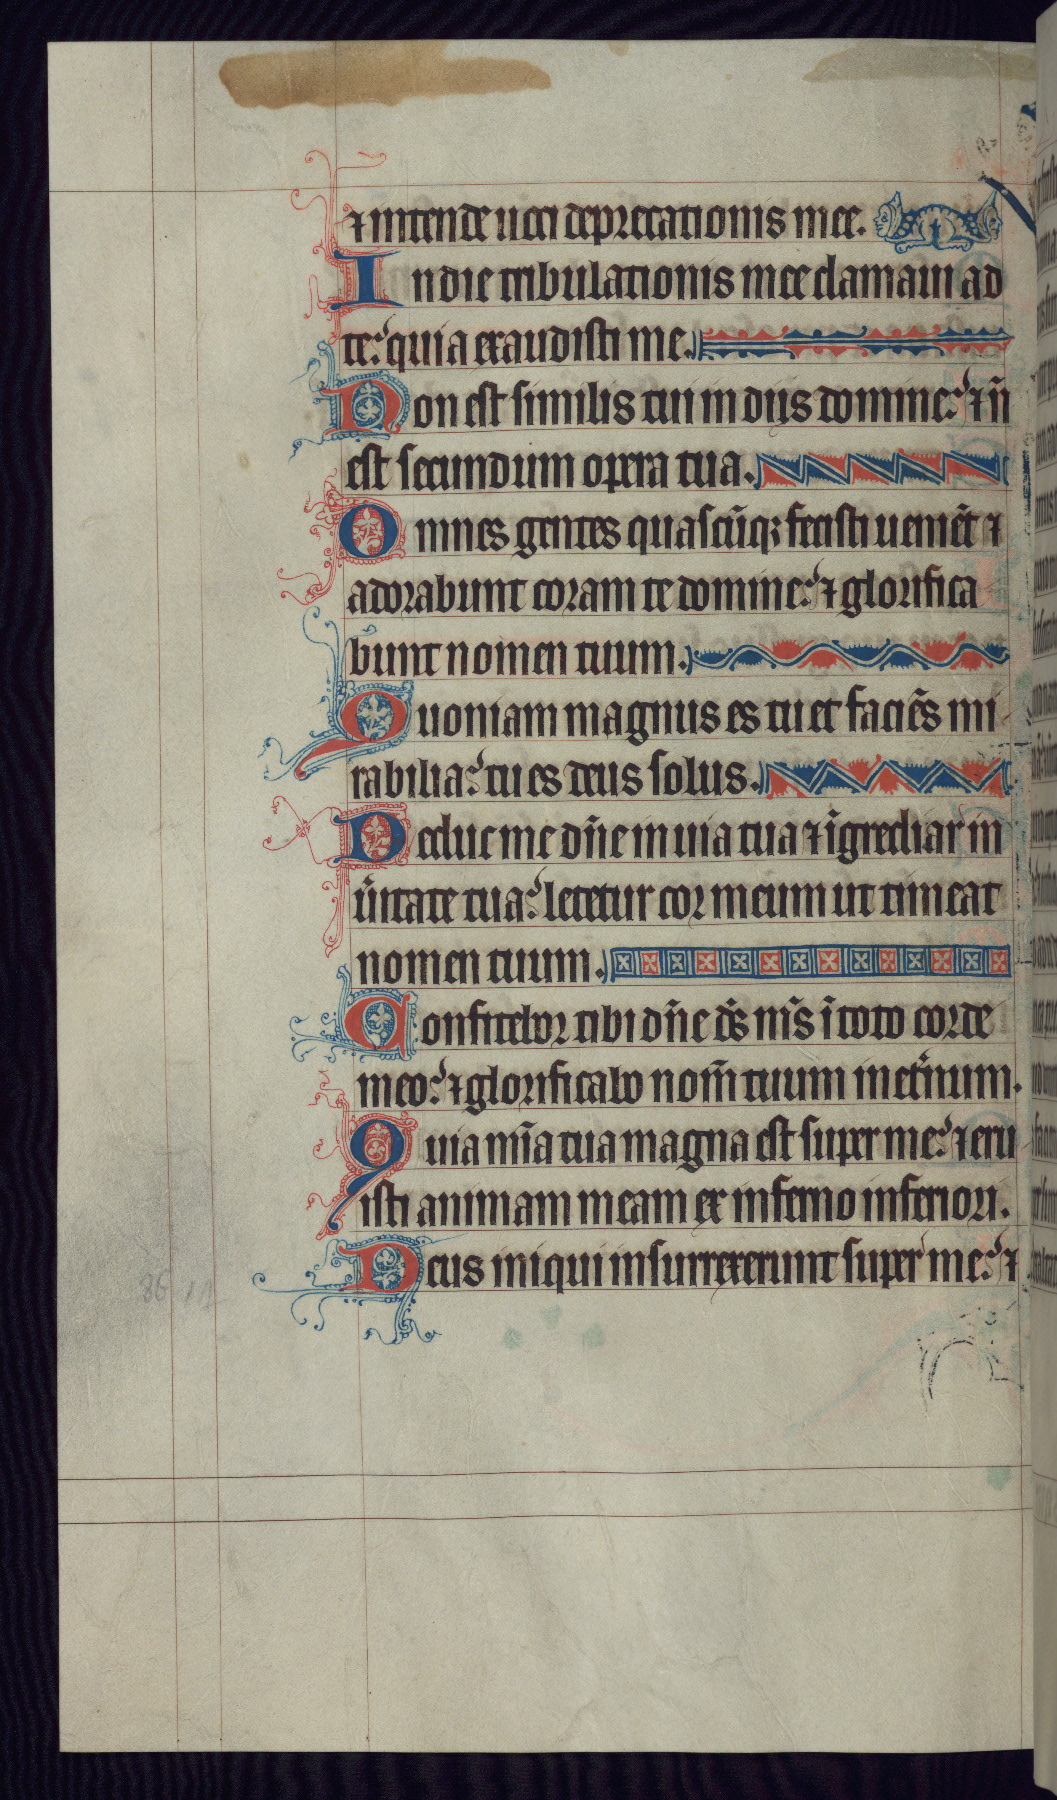 ⁊ intende uoci deprecationis mee.
In die tribulationis mee clamaui ad
te: quia exaudisti me.
Non est similis tui in diis domine: ⁊ n̄
est secundum opera tua.
Omnes gentes quascūqꝫ fecisti ueniēt ⁊
adorabunt coram te domine: ⁊ glorifica
bunt nomen tuum.
Quoniam magnus es tu et faciēs mi
rabilia: tu es deus solus.
Deduc me dn̄e in uia tua ⁊ īgrediar in
ùitate tua: letetur cor meum ut timeat
nomen tuum.
Confitebor tibi dn̄e ds̄ ms̄ ī toto corde
meo: ⁊ glorificabo nom̄ tuum in et̄num.
Quia mīa tua magna est super me: ⁊ eru
isti animam meam ex inferno inferiori.
Deus iniqui insurrexerunt super me: ⁊